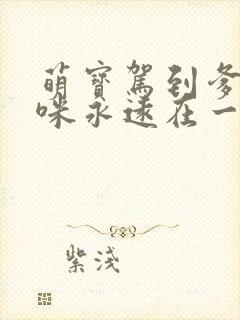 萌寶駕到爹
咪永遠在一
紫淺